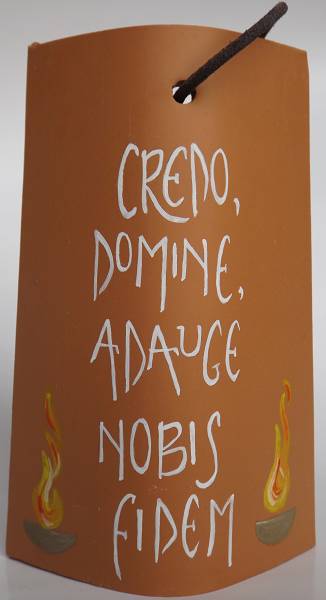 CREDO,
DOMINE,
ADAUGE
NOBIS
FIDEM